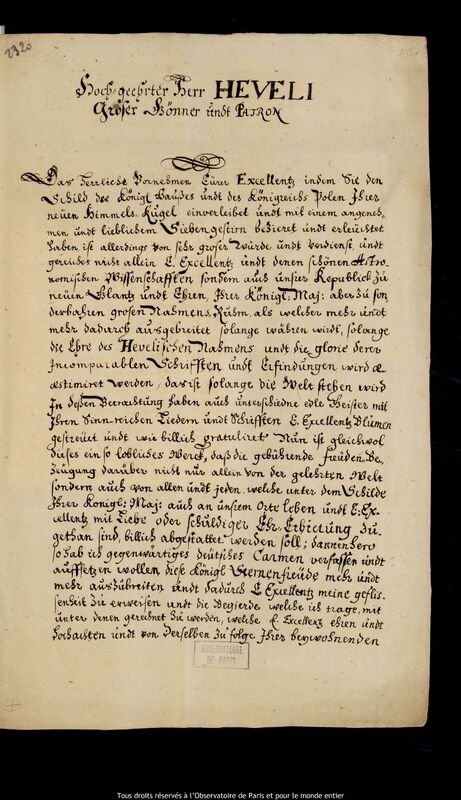 2320
Hoch-geehrter Herr HEVELI
Großer Gönner undt PATRON
Das herrliche Vornehmen Eürer Excellentz indem Sie den
Schild des Königl: Haußes undt des Königreichs Polen Ihrer
neüen Himmels Kugel einverleibet undt mit einem angeneh,
men undt lieblichem Siebengestirn beßieret undt erleüchtet
haben ist allerdings von sehr großer würde undt verdienst undt
gereichet nicht allein E. Excellentz undt denen schönen Astro,
nomischen Wissenschafften sondern auch unsrer Republick zu
neüen Glantz undt Ehren, Ihrer Königl: Maj: aber zu son
derbahren großen Nahmens Ruhm, als welcher mehr undt
mehr dadurch ausgebreitet solange währen wirdt, solange
die Ehre des Hevelischen Nahmens undt die glorie derer
Incomparablen Schrifften undt Erfindungen wird æ
æstimiret werden, das ist solange die Welt stehen wird
In deßen Betrachtung haben auch unterschiedne edle Geister mit
Ihren Sinn-reichen Liedern undt Schrifften E. Excellentz Blumen
gestreüet undt wie billich gratuliret Nun ist gleichwol
dieses ein so löbliches Werck, daß die gebührende freüden Be,
zeügung darüber nicht nur allein von der gelehrten Welt
sondern auch von allen undt jeden, welche unter dem Schilde
Ihrer Königl: Maj: auch an unsrem Orte leben undt E: Ex,
cellentz mit Liebe oder schüldiger Ehr Erbietung zu,
gethan sind, billich abgestattet werden soll; dannenhero
so hab ich gegenwärtiges deütsches Carmen verfassen undt
auffsetzen wollen diese Königl Sternenfreüde mehr undt
mehr auszubreiten undt dadurch E Excellentz meine geflis,
senheit zu erweisen undt die Begierde welche ich trage, mit
unter denen gerechnet zu werden, welche E. Excellentz ehren undt
hochachten undt von Derselben zu folge Ihrer beywohnenden
OBSERVATOIRE
DE PARIS
Tous droits réservés à l'Observatoire de Paris et pour le monde entier